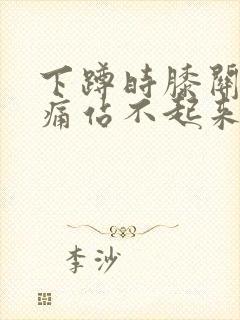 下蹲时膝关
痛站不起来
李沙